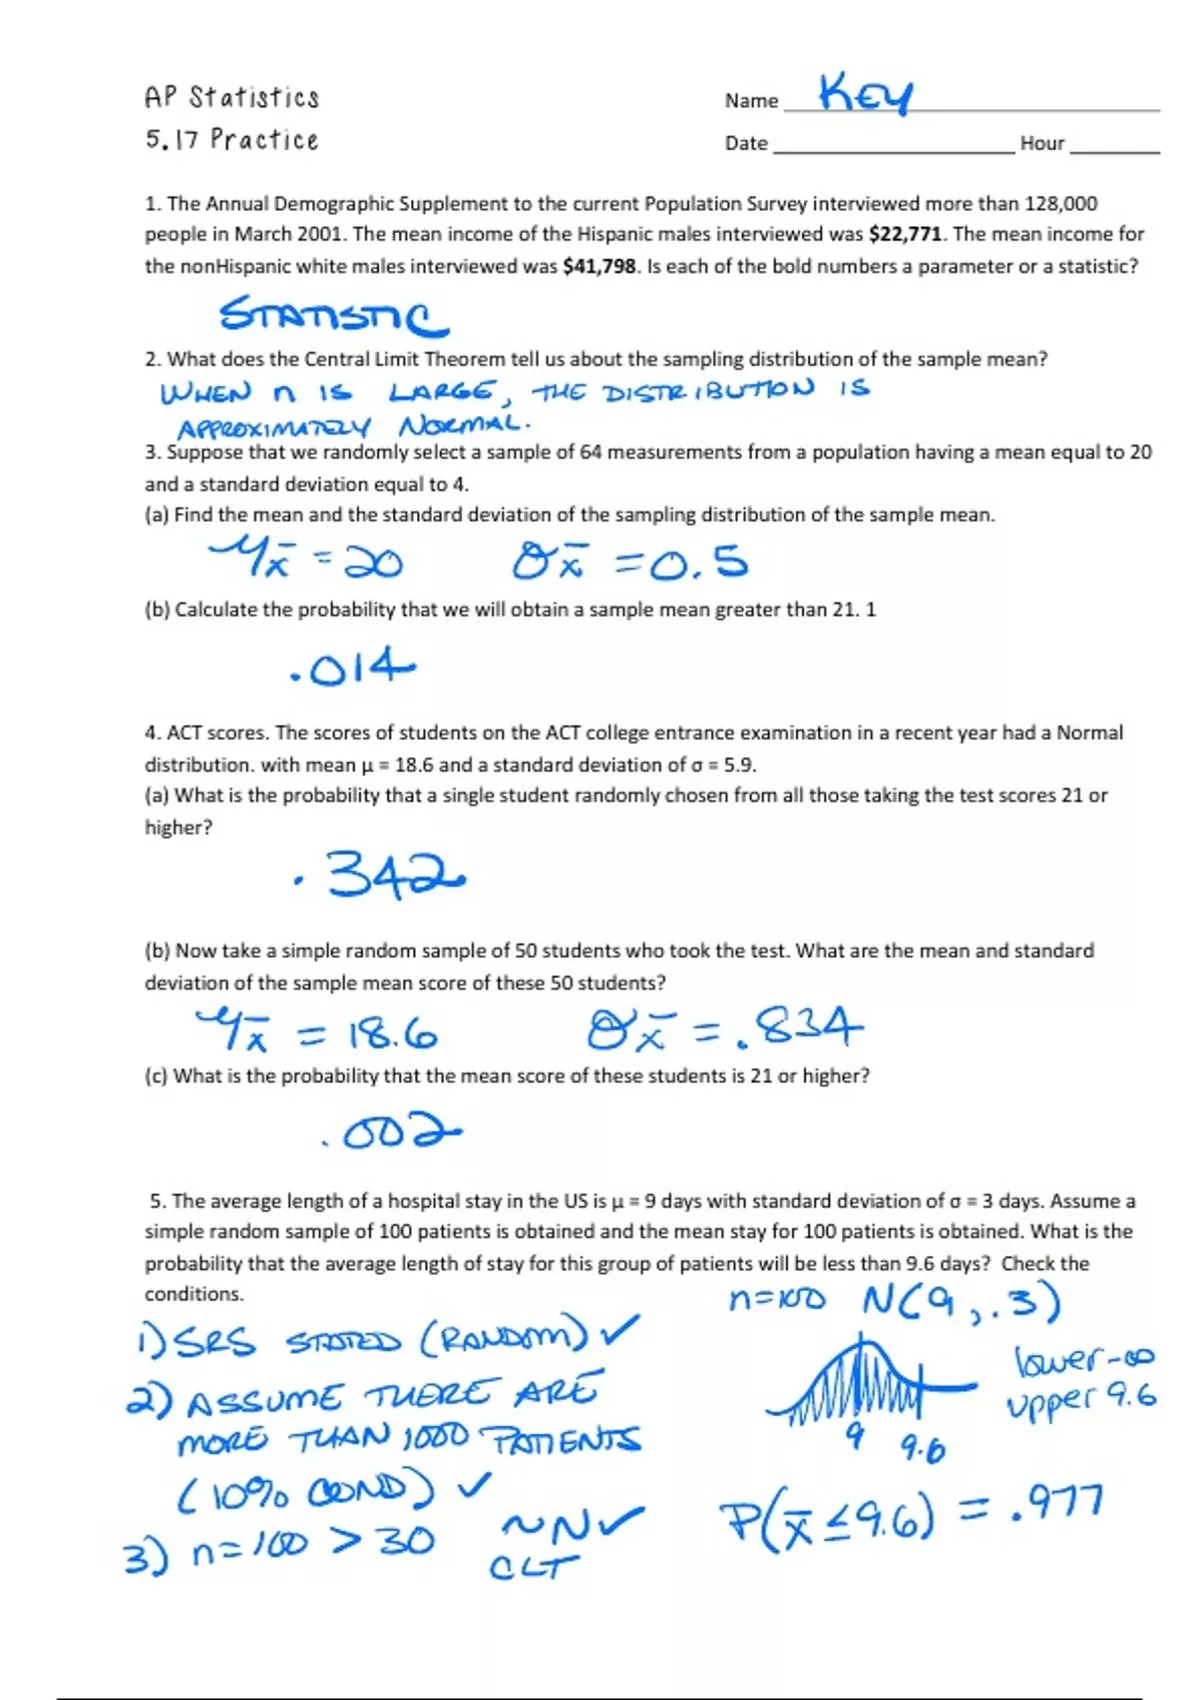 AP Statistics
Name KEY
5.17 Practice
Date Hour
1. The Annual Demographic Supplement to the current Population Survey interviewed more than 128,000
people in March 2001. The mean income of the Hispanic males interviewed was $22,771. The mean income for
the nonHispanic white males interviewed was $41,798. Is each of the bold numbers a parameter or a statistic?
STATISTIC
2. What does the Central Limit Theorem tell us about the sampling distribution of the sample mean?
WHEN n IS LARGE, THE DISTRIBUTION IS
APPROXIMATELY NORMAL.
3. Suppose that we randomly select a sample of 64 measurements from a population having a mean equal to 20
and a standard deviation equal to 4.
(a) Find the mean and the standard deviation of the sampling distribution of the sample mean.
μx̄ = 20 σx̄ = 0.5
(b) Calculate the probability that we will obtain a sample mean greater than 21. 1
.014
4. ACT scores. The scores of students on the ACT college entrance examination in a recent year had a Normal
distribution. with mean μ = 18.6 and a standard deviation of σ = 5.9.
(a) What is the probability that a single student randomly chosen from all those taking the test scores 21 or
higher?
.342
(b) Now take a simple random sample of 50 students who took the test. What are the mean and standard
deviation of the sample mean score of these 50 students?
μx̄ = 18.6 σx̄ = .834
(c) What is the probability that the mean score of these students is 21 or higher?
.002
5. The average length of a hospital stay in the US is μ = 9 days with standard deviation of σ = 3 days. Assume a
simple random sample of 100 patients is obtained and the mean stay for 100 patients is obtained. What is the
probability that the average length of stay for this group of patients will be less than 9.6 days? Check the
conditions.
n=100 N(9, .3)
1) SRS STATED (RANDOM) ✓
2) ASSUME THERE ARE
MORE THAN 1000 PATIENTS
(10% COND) ✓
3) n=100 > 30 ~N ✓
CLT
lower -∞
upper 9.6
9 9.6
P(x̄ ≤ 9.6) = .977